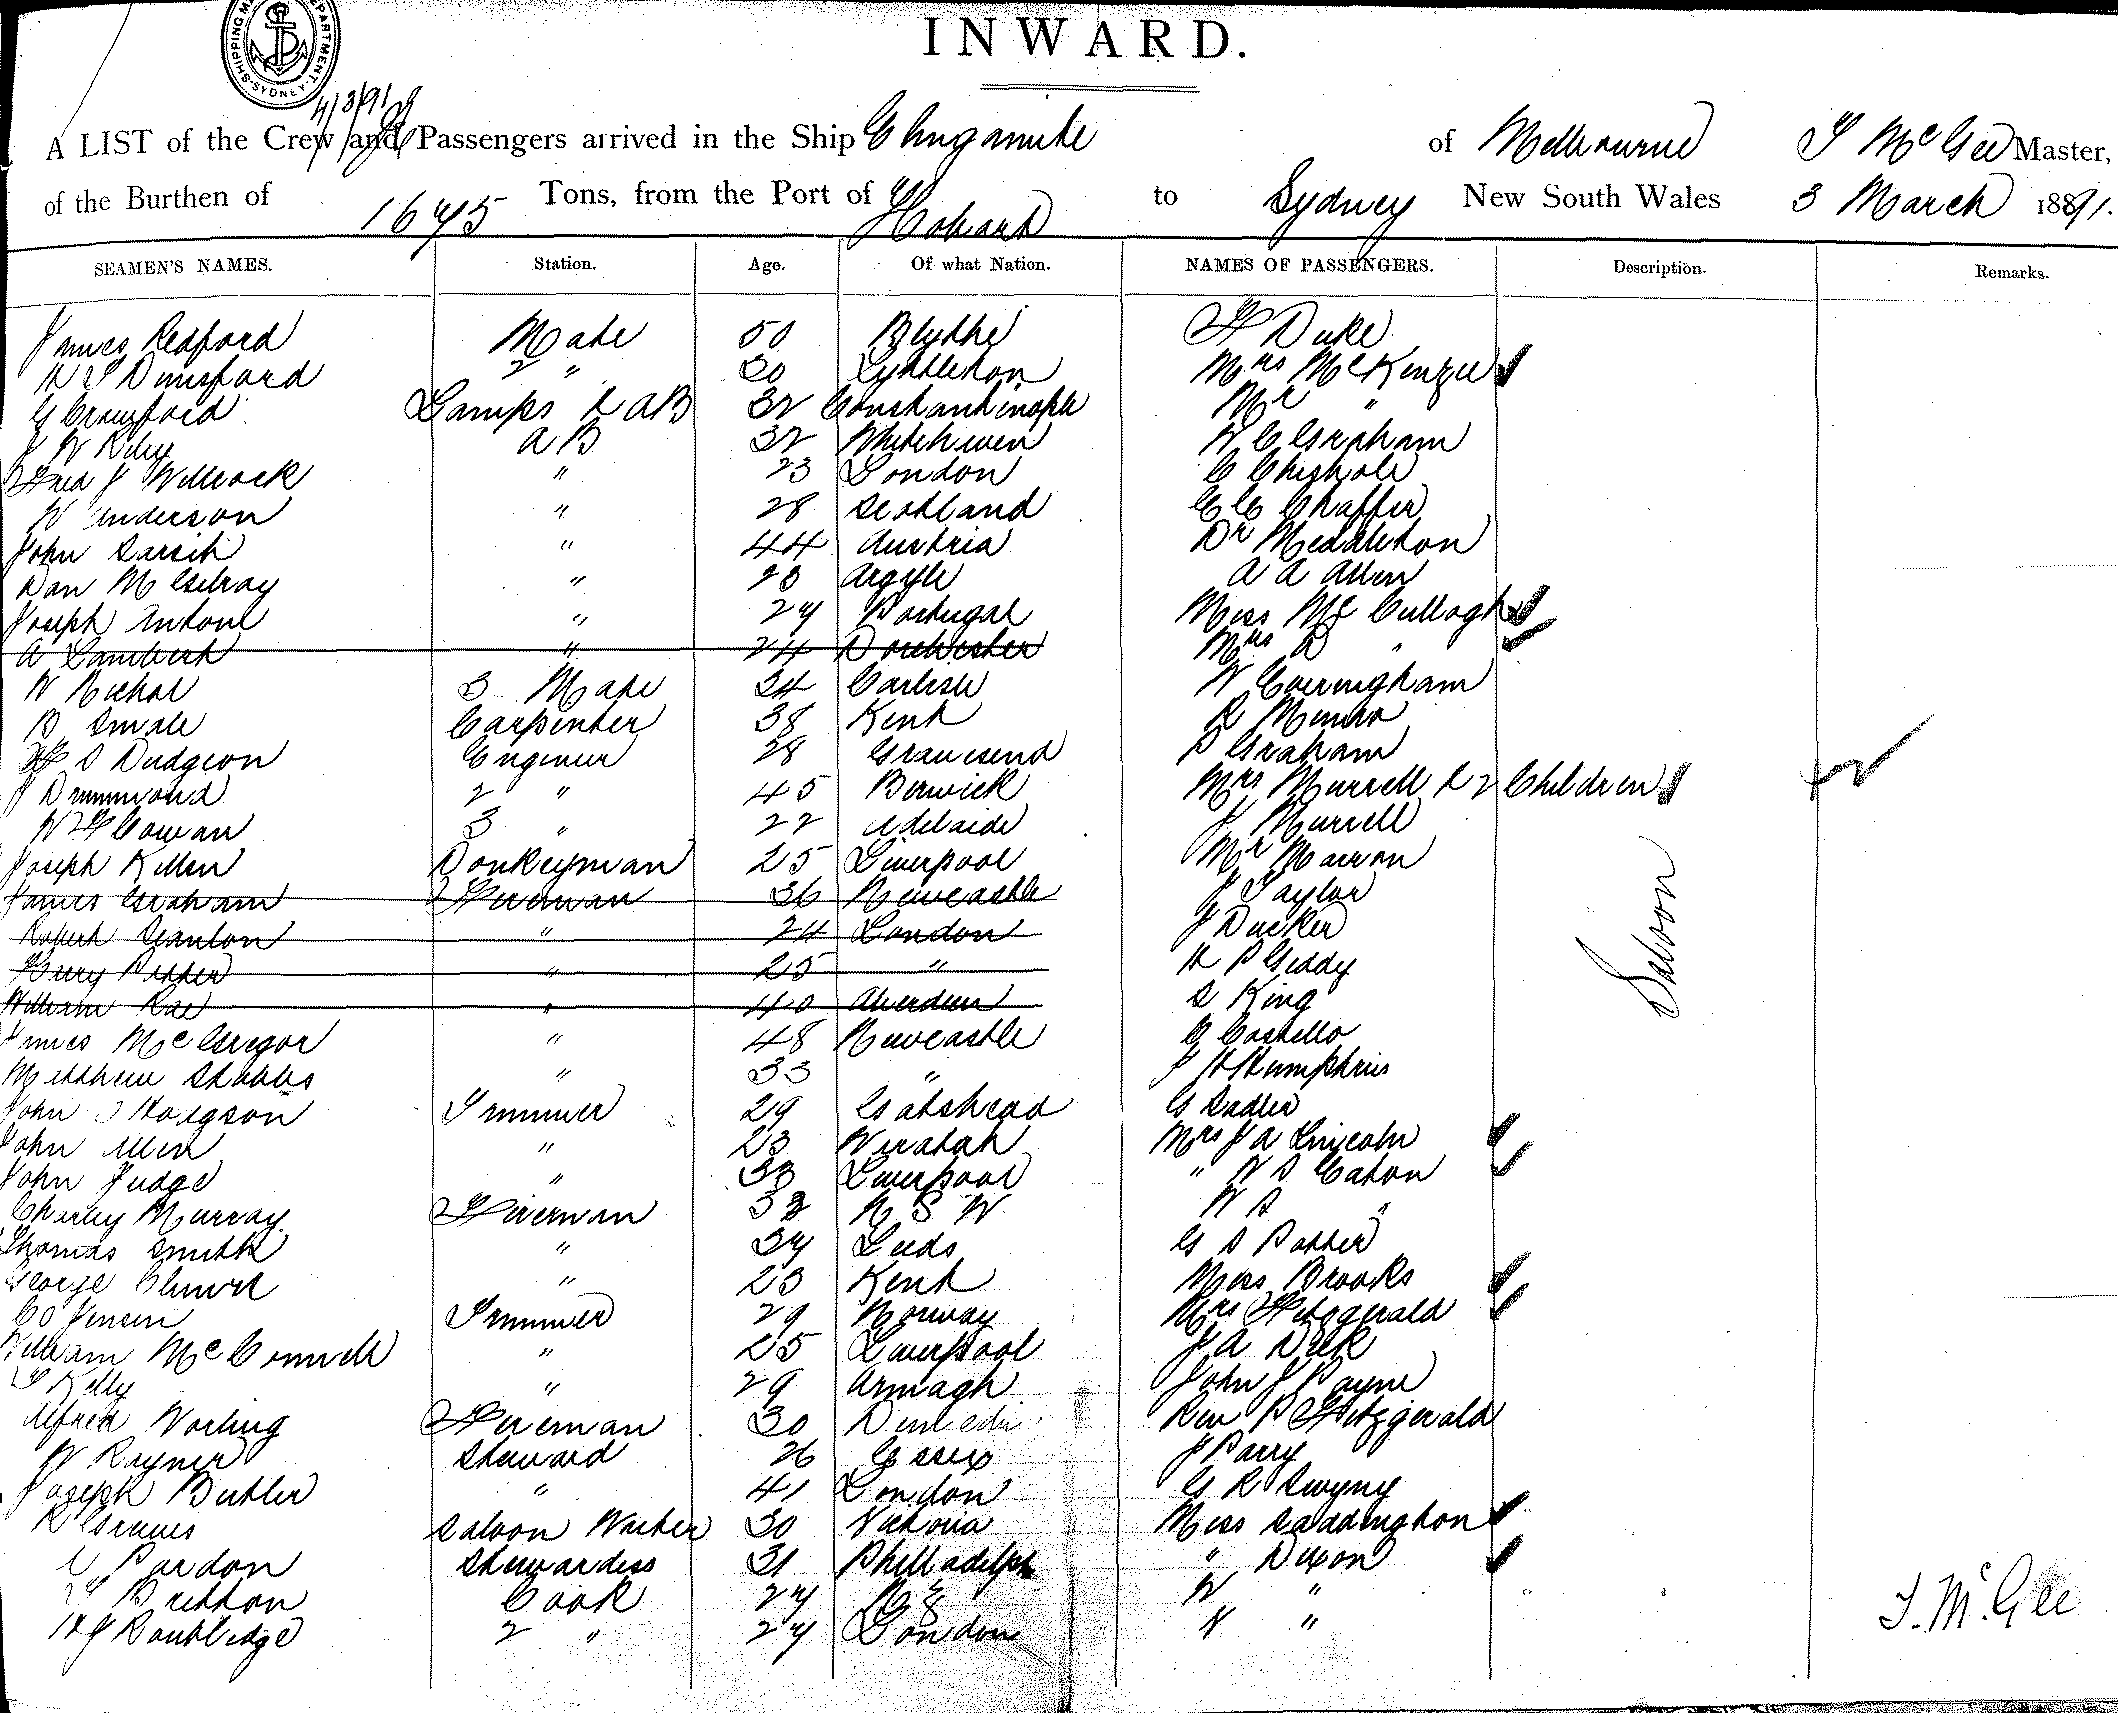 SHIPPING MA DEPARTMENT. SYDNEY
INWARD.
4/3/91
A LIST of the Crew and Passengers arrived in the Ship Elingamite of Melbourne T McGee Master,
of the Burthen of 1675 Tons, from the Port of Hobart to Sydney New South Wales 3 March 1891.
SEAMEN'S NAMES. Station. Age. Of what Nation. NAMES OF PASSENGERS. Description. Remarks.
James Redford Mate 50 Blythe H Duke
2 " 30 Lyttleton Mrs McKenzie
G Crawford Lamps & AB 32 Constantinople Mr "
J W Riley AB 32 Whitehaven W C Graham
Fred J Willcock " 23 London
W Anderson " 28 Scotland C C Chaffer
John " 44 Austria Dr Meddleton
Dan McGilray " 23 Argyle A A Allen
Joseph Antone " 27 Portugal Miss McCullagh
A Lambert " 24 Dorchester Mrs D "
W Nichol 3 Mate 34 Carlisle W Coeringham
B Smale Carpenter 38 Kent R Munro
H S Dudgeon Engineer 28 Gravesend P Graham
J Drummond 2 " 45 Berwick Mrs Murrell & 2 Children
W H Cowan 3 " 22 Adelaide J Murrell
Joseph Killen Donkeyman 25 Liverpool Mr Marron
James Graham Fireman 36 Newcastle J Taylor
Robert Scanlon " 24 London J Ducker
Potter " 25 " H P Geddy
William Rae " 40 Aberdeen S King
James McGregor " 48 Newcastle G Costello
Matthew Stubbs " 33 " J H Humphries
John J Hodgson Trimmer 29 Gatshead G Sadler
John Allen " 23 Waratah Mrs J A Lincoln
John Judge " 33 Liverpool " W S Caton
Charley Murray Fireman 33 N S W W S "
Thomas Smith " 37 Leeds G S Potter
George " 23 Kent Miss Brooks
Jensen Trimmer 29 Norway Mrs Fitzgerald
William McConnell " 25 Liverpool J A Dick
T Kelly " 29 Armagh John J Payne
Alfred Worling Fireman 30 Dunedin Rev P Fitzgerald
W Rayner Steward 26 Essex J Parry
Joseph Butler " 41 London G R Swyny
R Graves Saloon Waiter 30 Victoria Miss Saddington
Pardon Stewardess 31 Philladelph " Dixon
T Britton Cook 27 N Z W "
H J Routledge 2 " 27 London N "
Saloon
T. McGee